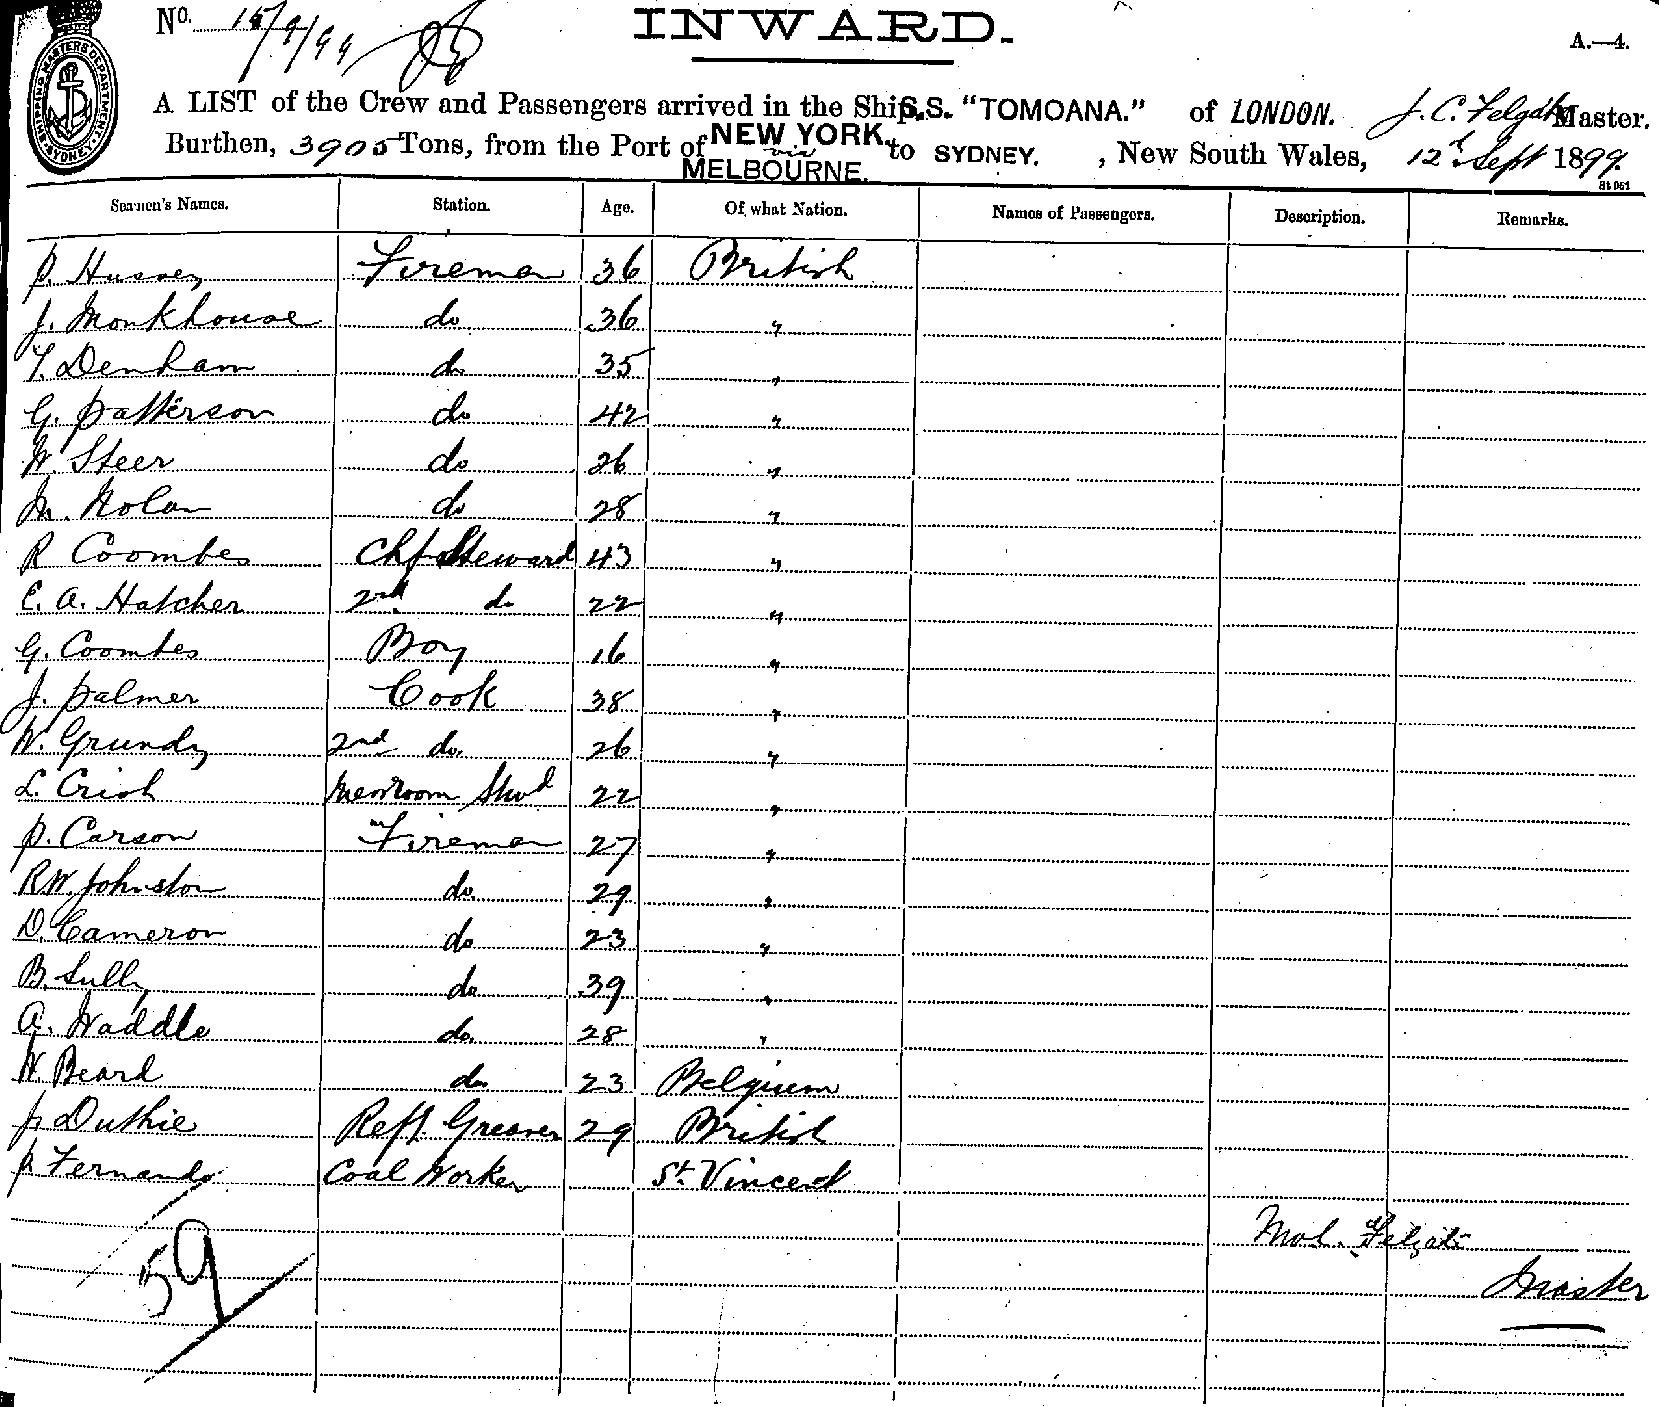 SHIPPING MASTERS DEPARTMENT SYDNEY
No. 15/9/99
INWARD.
A.—4.
A LIST of the Crew and Passengers arrived in the Ship S.S. "TOMOANA." of LONDON. J. C. Felgate Master.
Burthen, 3905 Tons, from the Port of NEW YORK via MELBOURNE. to SYDNEY. , New South Wales, 12th Sept 1899.
Seamen's Names. Station. Age. Of what Nation. Names of Passengers. Description. Remarks.
P. Hussey Fireman 36 British
J. Monkhouse do 36 "
T. Denham do 35 "
G. Patterson do 42 "
W. Steer do 26 "
M. Nolan do 28 "
R Coombes Chf Steward 43 "
C. A. Hatcher 2nd do 22 "
G. Coombes Boy 16 "
J. Palmer Cook 38 "
W. Grundy 2nd do. 26 "
L. Crish Messroom Stwd 22 "
P. Carson Fireman 27 "
R.W. Johnston do. 29 "
D. Cameron do 23 "
B. Sully do 39 "
A. Waddle do. 28 "
W. Beard do 23 Belgium
J. Duthie Refr. Greaser 29 British
P Fernando Coal Worker St. Vincent
59
Felgate
Master